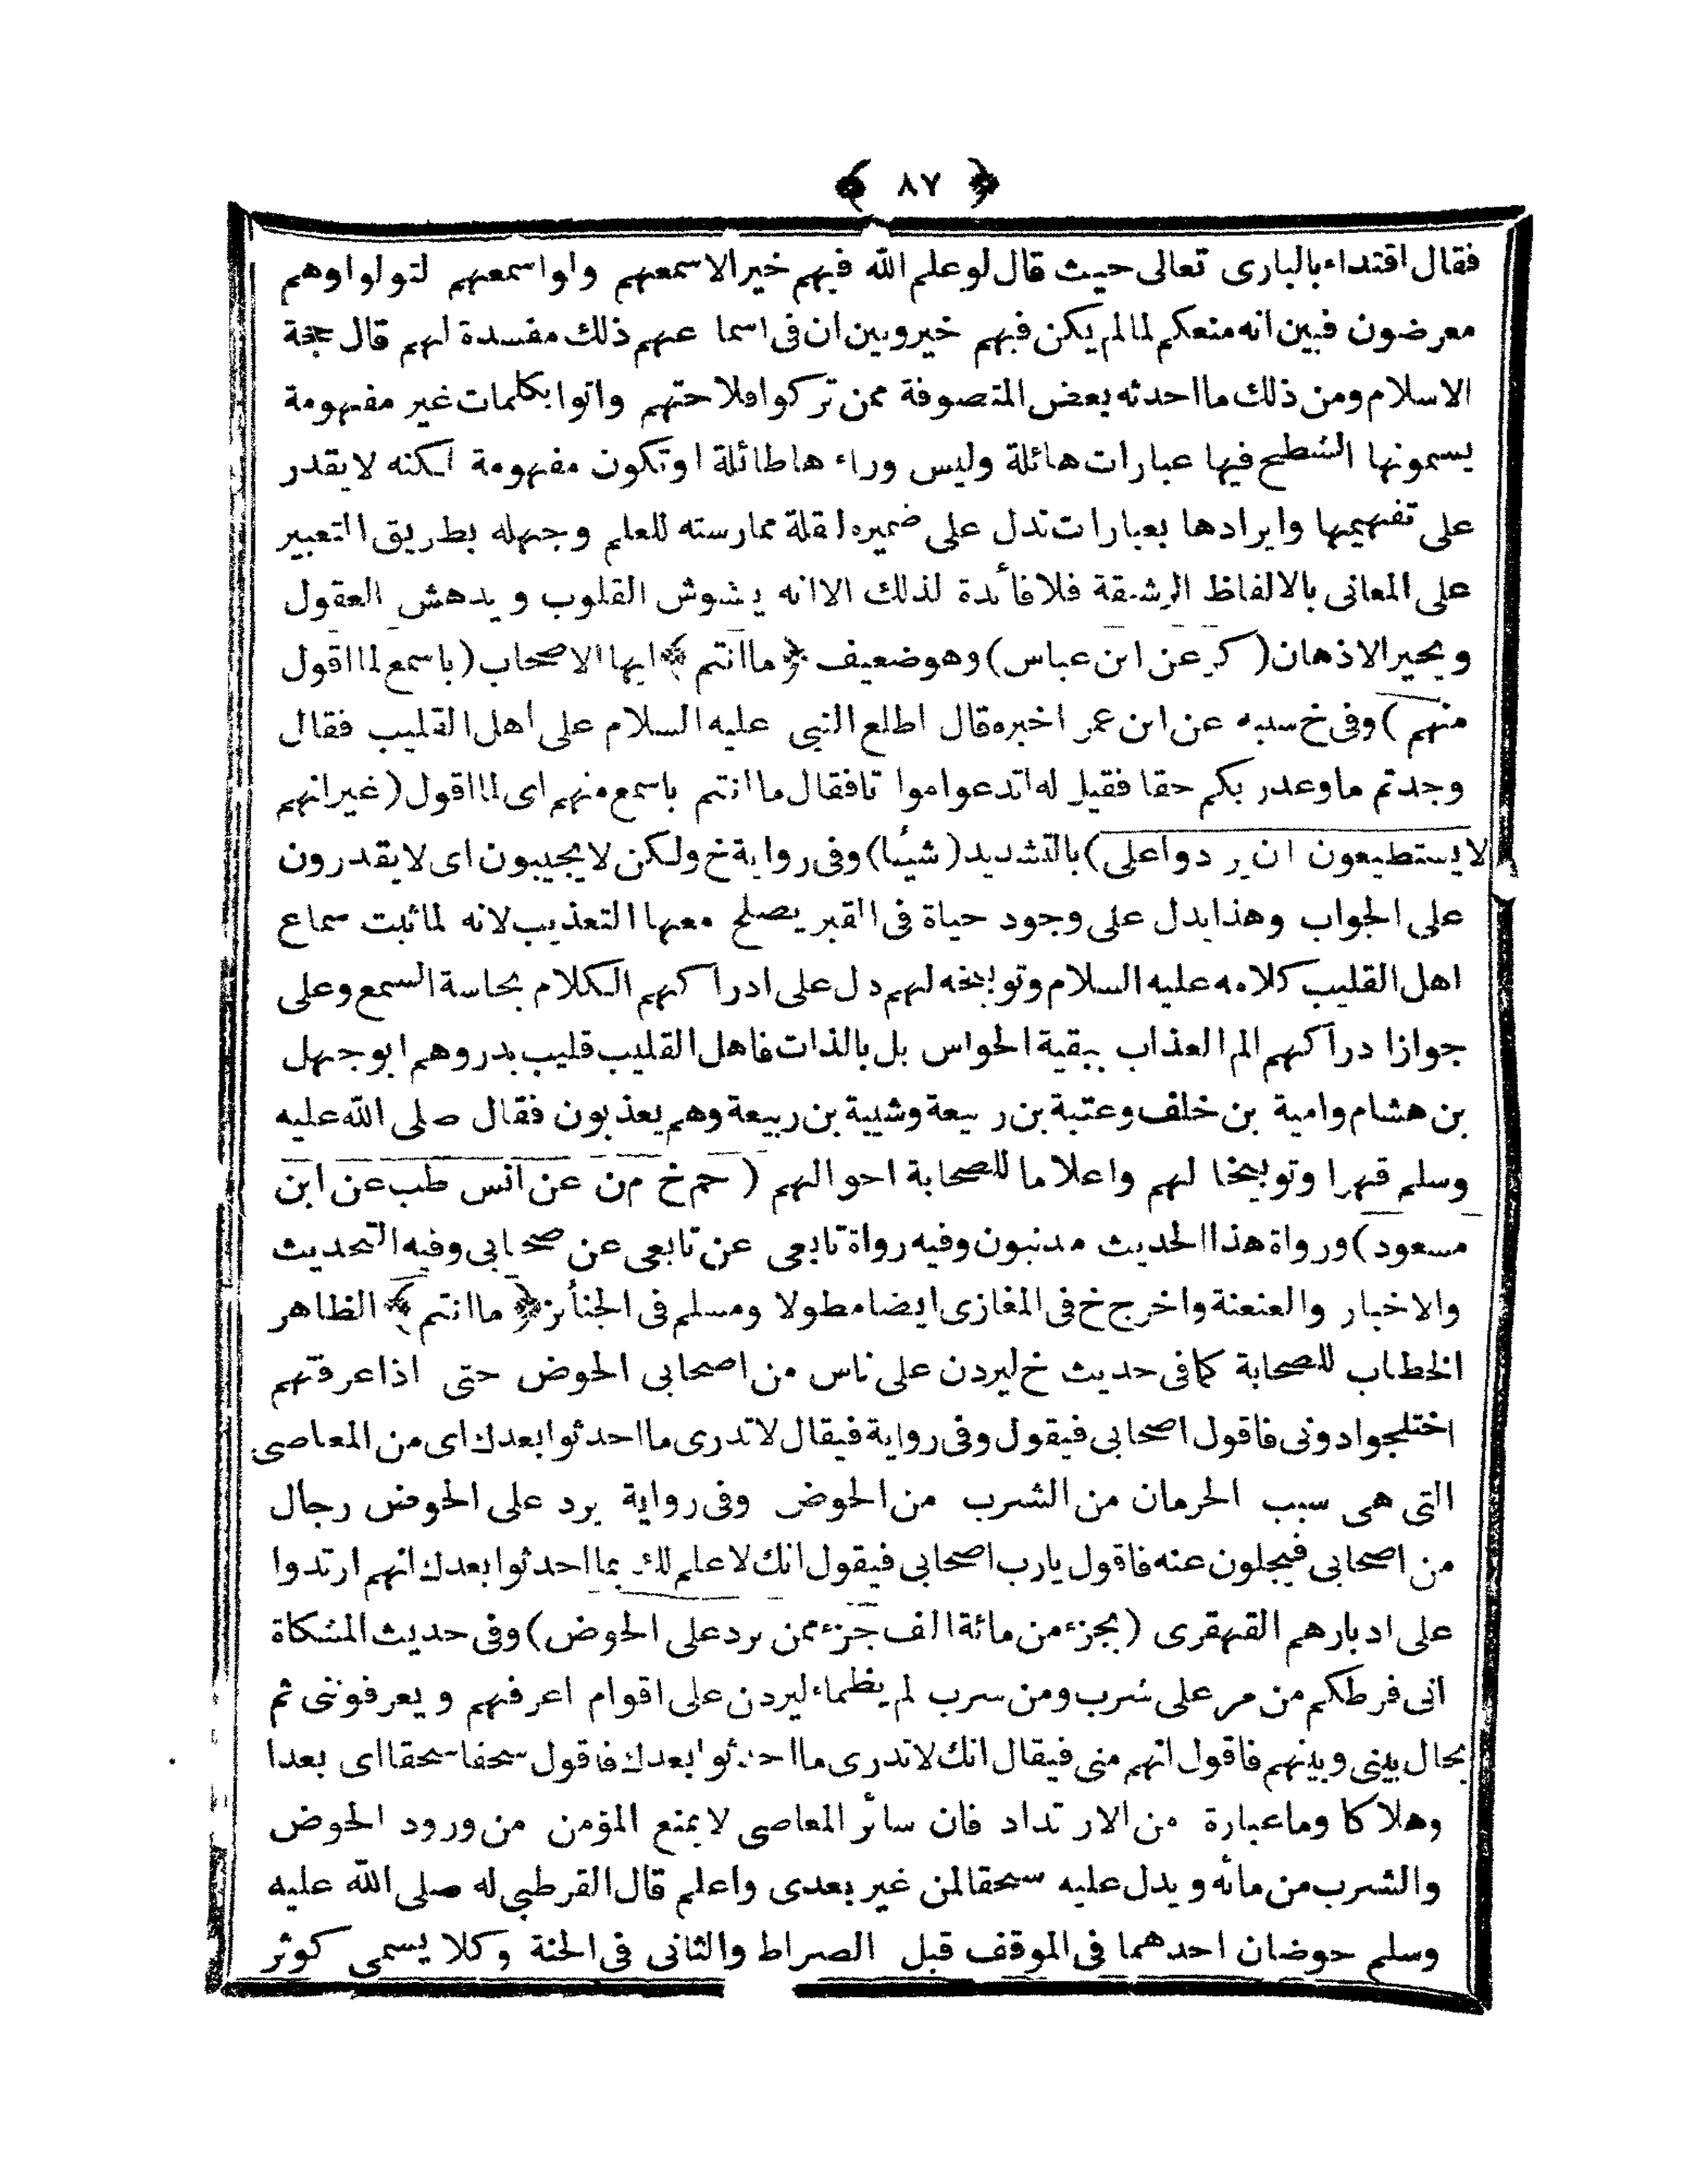 ﴿ ٨٧ ﴾
فقال اقتداء بالبارى تعالى حيث قال لو علم الله فيهم خيرا لاسمعهم ولو اسمعهم لتولوا وهم
معرضون فبين انه منعكم لما لم يكن فيهم خير وبين ان فى اسما عهم ذلك مفسدة لهم قال حجة
الاسلام ومن ذلك ما احدثه بعض المتصوفة ممن تركوا فلاحتهم واتوا بكلمات غير مفهومة
يسمونها الشطح فيها عبارات هائلة وليس وراء ها طائلة او تكون مفهومة لكنه لا يقدر
على تفهيمها وايرادها بعبارات تدل على ضميره لقلة ممارسته للعلم وجهله بطريق التعبير
على المعانى بالالفاظ الرشيقة فلا فائدة لذلك الا انه يشوش القلوب ويدهش العقول
ويحير الاذهان (كر عن ابن عباس) وهو ضعيف ﴿ ما انتم ﴾ ايها الاصحاب (باسمع لما اقول
منهم) وفى خ سببه عن ابن عمر اخبره قال اطلع النبى عليه السلام على اهل القليب فقال
وجدتم ما وعد ربكم حقا فقيل له اتدعو امواتا فقال ما انتم باسمع منهم اى لما اقول (غير انهم
لا يستطيعون ان يردوا على) بالتشديد (شيئا) وفى رواية خ ولكن لا يجيبون اى لا يقدرون
على الجواب وهذا يدل على وجود حياة فى القبر يصلح معها التعذيب لانه لما ثبت سماع
اهل القليب كلامه عليه السلام وتوبيخه لهم دل على ادراكهم الكلام بحاسة السمع وعلى
جواز ادراكهم الم العذاب ببقية الحواس بل بالذات فاهل القليب قليب بدر وهم ابوجهل
بن هشام وامية بن خلف وعتبة بن ربيعة وشيبة بن ربيعة وهم يعذبون فقال صلى الله عليه
وسلم قهرا وتوبيخا لهم واعلاما للصحابة احوالهم (حم خ م ن عن انس طب عن ابن
مسعود) ورواة هذا الحديث مدنيون وفيه رواة تابعى عن تابعى عن صحابى وفيه التحديث
والاخبار والعنعنة واخرج خ فى المغازى ايضا مطولا ومسلم فى الجنائز ﴿ ما انتم ﴾ الظاهر
الخطاب للصحابة كما فى حديث خ ليردن على ناس من اصحابى الحوض حتى اذا عرفتهم
اختلجوا دونى فاقول اصحابى فيقول وفى رواية فيقال لا تدرى ما احدثوا بعدك اى من المعاصى
التى هى سبب الحرمان من الشرب من الحوض وفى رواية يرد على الحوض رجال
من اصحابى فيجلون عنه فاقول يارب اصحابى فيقول انك لا علم لك بما احدثوا بعدك انهم ارتدوا
على ادبارهم القهقرى (بجزء من مائة الف جزء ممن يرد على الحوض) وفى حديث المشكاة
انى فرطكم من مر على شرب ومن سرب لم يظماء ليردن على اقوام اعرفهم ويعرفوننى ثم
يحال بينى وبينهم فاقول انهم منى فيقال انك لا تدرى ما احدثوا بعدك فاقول سحقا سحقا اى بعدا
وهلاكا وما عبارة من الارتداد فان سائر المعاصى لا يمنع المؤمن من ورود الحوض
والشرب من مائه ويدل عليه سحقا لمن غير بعدى واعلم قال القرطبى له صلى الله عليه
وسلم حوضان احدهما فى الموقف قبل الصراط والثانى فى الجنة وكلا يسمى كوثر